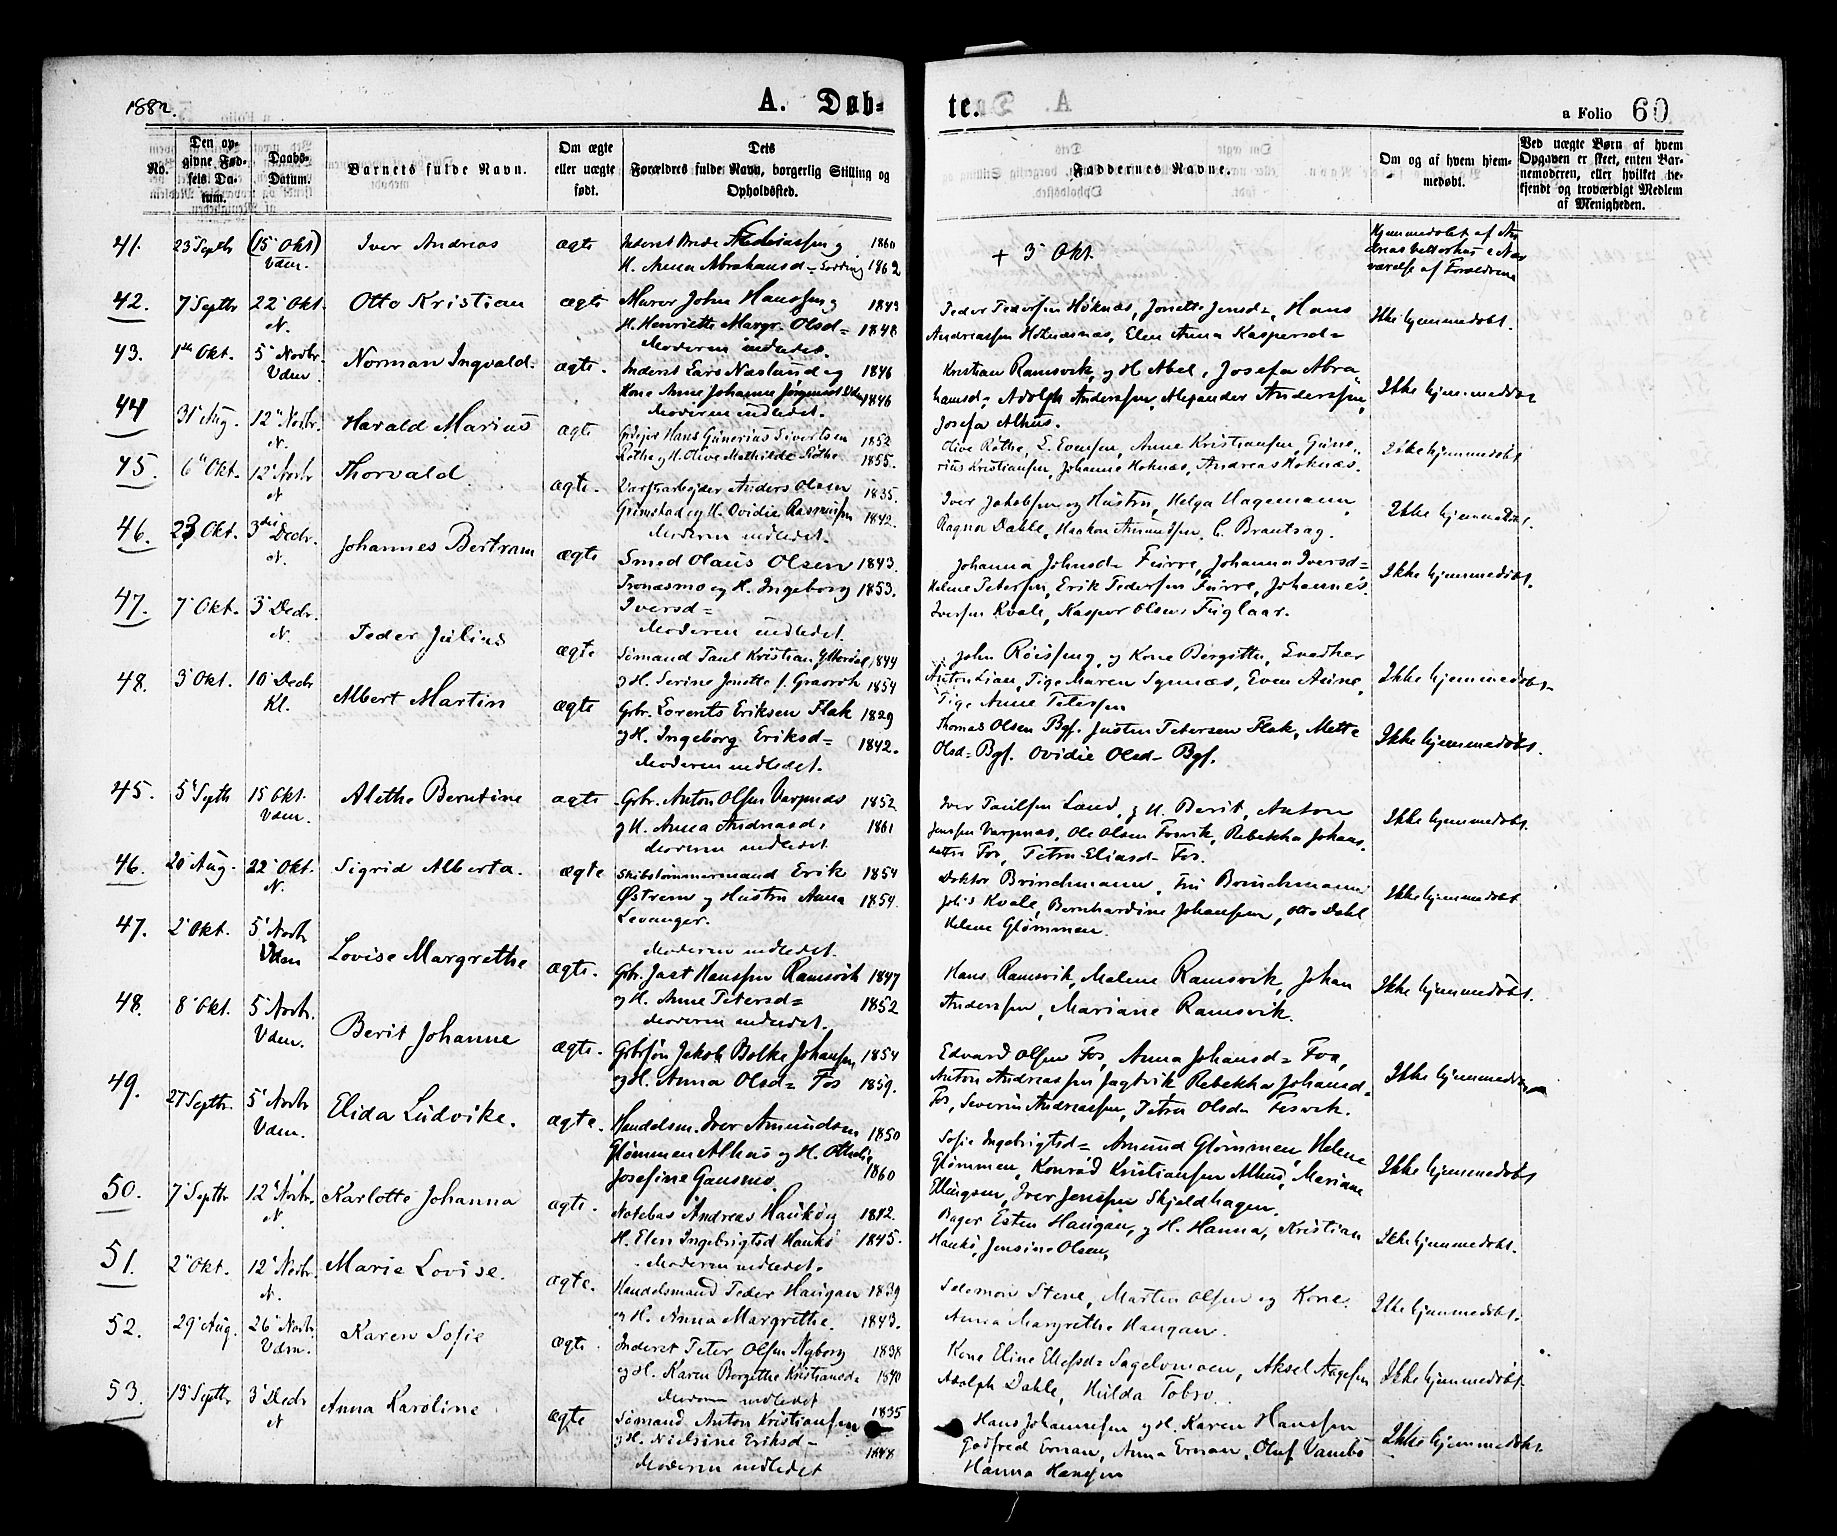 1882.
A. Døb-
te.
a Folio 60
No.
Den op-
givne Fød-
sels Da-
tum.
Daabs-
Datum.
Barnets fulde Navn.
Om ægte
eller uægte
født.
Dets
Forældres fulde Navn, borgerlig Stilling og
Opholdssted.
Faddernes Navne.
Om og af hvem hjem-
medøbt.
Ved uægte Børn af hvem
Opgaven er skeet, enten Bar-
nemoderen, eller hvilket be-
kjendt og troværdigt Medlem
af Menigheden.
41. 23 Septbr (15 Okt) Vdm. Iver Andreas ægte Inderst 1860
H. Anna Abrahamsd= 1862
+ 3 Okt.
Hjemmedøbt af
værelse af Forældrene
42. 7 Septbr 22 Okt. N. Otto Kristian ægte Murer John Hanssen og 1843
H. Henriette Margr. Olsd= 1848
Moderen indledet.
Peder Pedersen Høknæs, Jonette Jensd=, Hans
Andreassen Høknæsnæs, Elen Anna Kaspersd=
Ikke hjemmedøbt.
43. 1 Okt. 5 Novbr. Vdm. Norman Ingvald. ægte. Inderst Lars Næslund og 1846
Kone Anne Johanne 1846
Moderen indledet.
Kristian Ramsvik og H. Abel, Josefa Abra-
hamsd=, Adolph Anderssen, Alexander Anderssen,
Josefa Alhus.
Ikke hjemmedøbt
44 31 Aug. 12 Novbr. N. Harald Marius ægte Hans Gunerius Sivertsen 1852
Røthe og H. Olive Mathilde Røthe 1855.
Olive Røthe, E. Evensen, Anne Kristiansen, Gune-
rius Kristiansen, Johanne Høknæs, Andreas Høknæs.
Ikke hjemmedøbt
45. 6 Okt. 12 Novbr N Thorvald. ægte. Anders Olsen 1835.
Grimstad og H. Ovidie Rasmussen 1842.
Moderen indledet.
Iver Jakobsen og Hustru, Helga Hagemann,
Ragna Dahle, Haakon Amundsen, C. Brautsag.
Ikke hjemmedøbt.
46. 23 Okt. 3die Decbr. N. Johannes Bertram ægte Smed Olaus Olsen 1843.
Tronæsmo og H. Ingeborg 1853.
Iversd=
Moderen indledet.
Johanna Johnsd= Furre, Johanna Iversd=
Helene Petersen, Erik Pedersen Furre, Johannes
Iversen Kvale, Kasper Olsen Fuglaar.
Ikke hjemmedøbt.
47. 7 Okt. 3 Decbr. N. Peder Julius ægte Sømand Paul Kristian 1844
og H. Serine Jonette 1854
John og Kone Bergitte,
Anton Lian, Pige Maren Synnæs, Even Aune,
Pige Anne Petersen
Ikke hjemmedøbt.
48. 3 Okt. 10 Decbr Kl. Albert Martin ægte Grbr. Lorents Eriksen Flak 1829
og H. Ingeborg Eriksd= 1842.
Moderen indledet.
Thomas Olsen Bgf. Justin Petersen Flak, Mette
Olsd= Bgf. Ovidie Olsd= Bgf.
Ikke hjemmedøbt.
45. 5 Septb 15 Okt. Vdm. Alethe Berntine ægte Grbr. Anton Olsen Varpnæs 1852
og H. Anna Andreasd. 1861
Moderen indledet
Iver Paulsen Lund, og H. Berit, Anton
Jenssen Varpnæs, Ole Olsen Fosvik, Rebekka Johans-
datter Fos, Petra Eliasd= Fos.
Ikke hjemmedøbt.
46. 20 Aug. 22 Okt. N. Sigrid Alberta. ægte Skibstømmermand Erik 1854
Østrem og Hustru Anna 1859.
Levanger.
Moderen indledet.
Doktor Brinchmann, Fru Brinchmann
Kvale, Bernhardine Johansen, Otto Dahl
Helene Glømmen.
Ikke hjemmedøbt
47. 2 Okt. 5 Novbr Vdm Lovise Margrethe ægte. Grbr. Jast Hanssen Ramsvik 1847
og H. Anne Petersd= 1852
Moderen indledet.
Hans Ramsvik, Malene Ramsvik, Johan
Anderssen, Mariane Ramsvik.
Ikke hjemmedøbt.
48. 8 Okt. 5 Novbr. Vdm. Berit Johanne ægte. Grbrsøn Jakob Bolke Johansen 1854
og H. Anna Olsd= Fos 1859.
Edvard Olsen Fos, Anna Johansd= Fos,
Anton Andreassen Jagtvik Rebekka Johansd=
Fos, Severin Andreassen, Petra Olsd= Fosvik.
Ikke hjemmedøbt
49. 27 Septbr. 5 Novbr Vdm. Elida Ludvike. ægte. Handelsm. Iver Amundsen 1850
Glømmen Alhus og H. Othelie
Josefine Gausmo. 1860
Sofie Ingebrigtsd= Amund Glømmen, Helene
Glømmen, Konrad Kristiansen Alhus, Mariane
Ellingsen, Iver Jenssen Skjeldhagen.
Ikke hjemmedøbt
50. 7 Septbr 12 Novbr. N. Karlotte Johanna ægte. Notebas Andreas Haukø og 1842.
H. Elen Ingebrigtsd Haukø 1845.
Moderen indledet.
Bager Esten Haugan, og H. Hanna, Kristian
Haukø, Jensine Olsen,
Ikke hjemmedøbt.
51. 2 Okt. 12 Novbr. N. Marie Lovise. ægte. Handelsmand Peder Haugan 1839
og H. Anna Margrethe. 1843.
Salomon Stene, Martin Olsen og Kone.
Anna Margrethe Haugan.
Ikke hjemmedøbt.
52. 29 Aug. 26 Novbr. Vdm. Karen Sofie ægte. Inderst Peter Olsen Nyborg 1838
og H. Karen Borgithe Kristiansd= 1840
Moderen indledet
Kone Eline Ellefsd= Sagelvmoen, Aksel Aagesen
Adolph Dahle, Hulda Tobro.
Ikke hjemmedøbt.
53. 13 Septbr 3 Decbr N Anna Karoline ægte Sømand Anton Kristiansen 1835
og H. Nielsine Eriksd= 1848
Moderen indledet
Hans Johannesen og H. Karen Hanssen
Godfred Ernan, Anna Ernan, Oluf Vambo
Hanna Hansen
Ikke hjemmedøbt